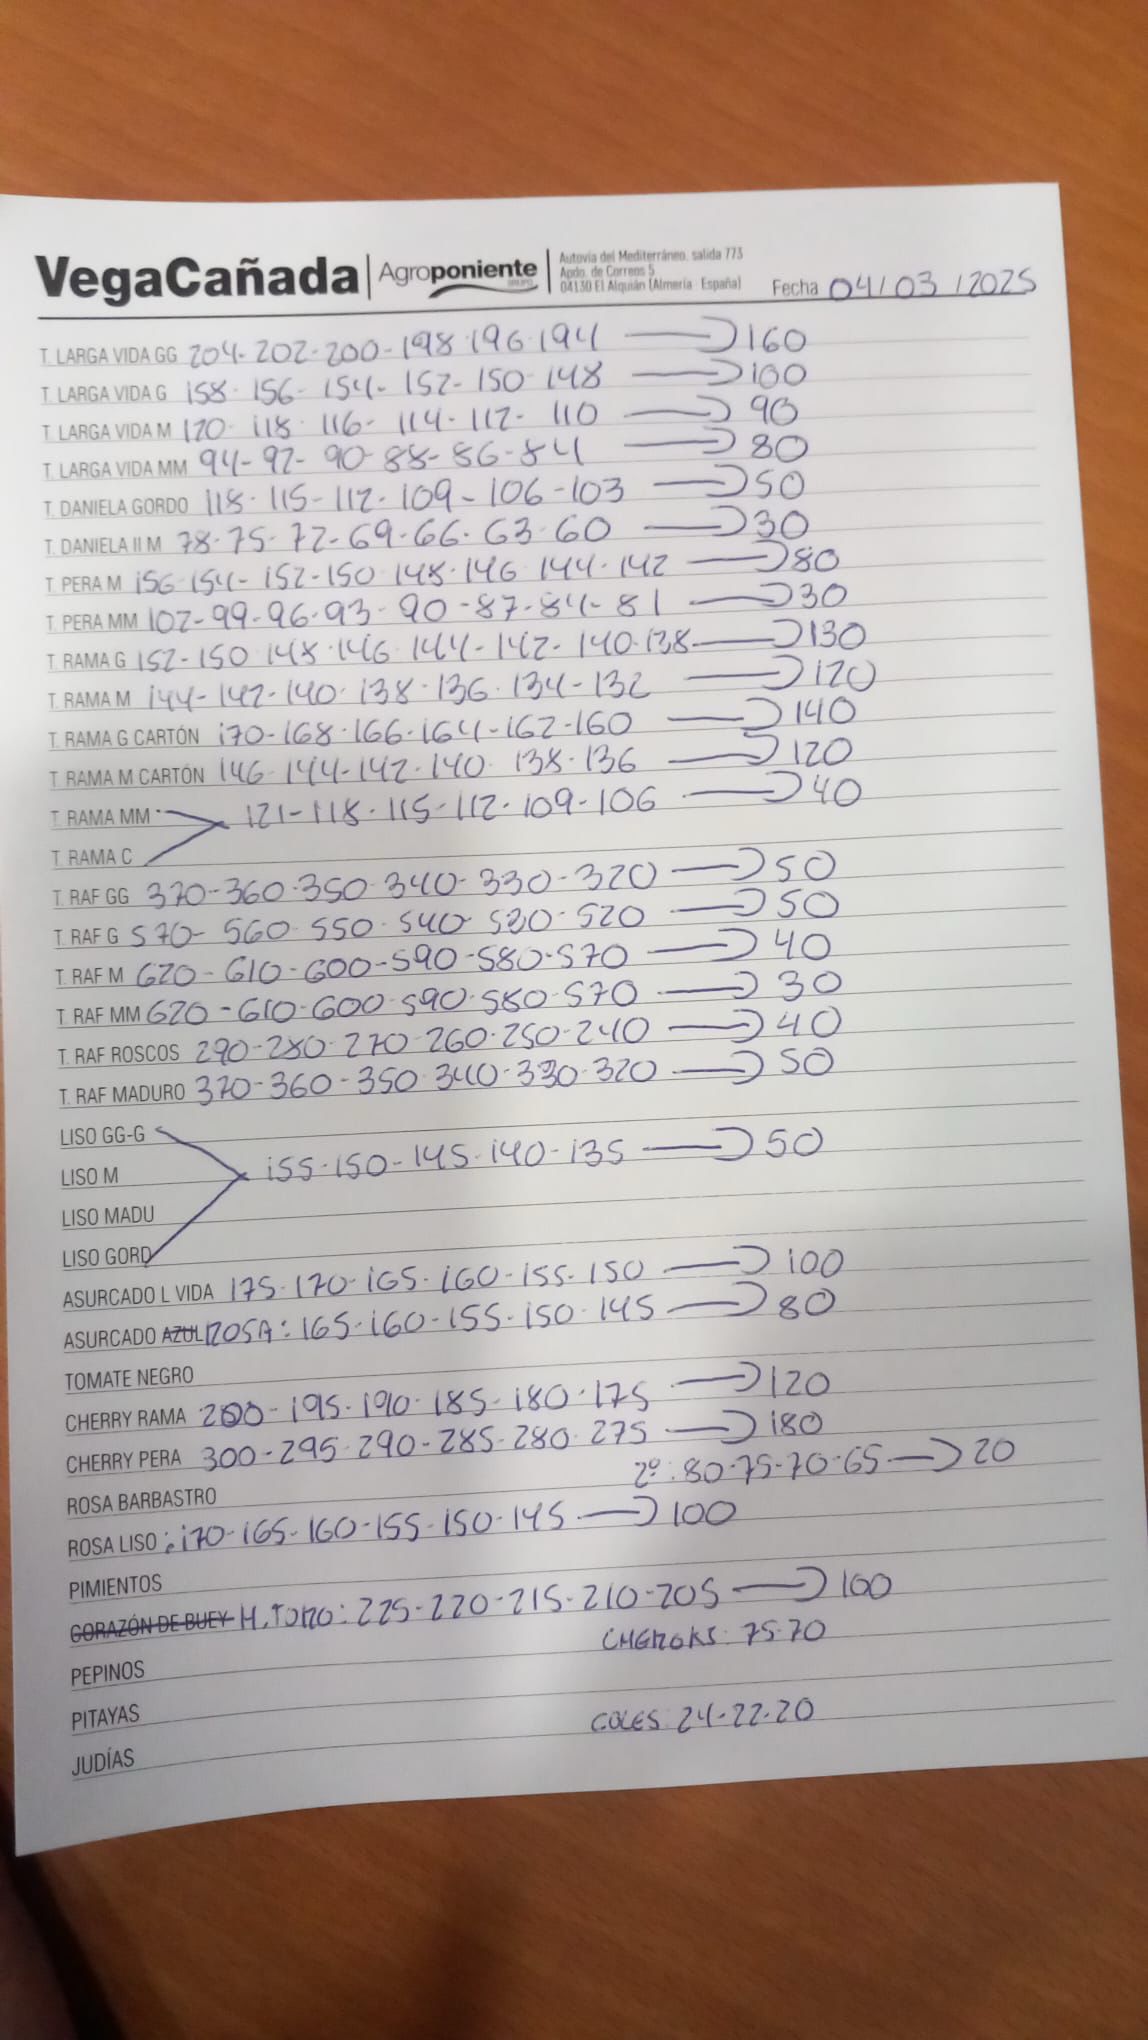 VegaCañada Agroponiente GRUPO
Autovía del Mediterráneo, salida 773
Apdo. de Correos 5
04130 El Alquián (Almería · España)
Fecha 04/03/2025
T. LARGA VIDA GG 204-202-200-198-196-194 → 160
T. LARGA VIDA G 158-156-154-152-150-148 → 100
T. LARGA VIDA M 120-118-116-114-112-110 → 90
T. LARGA VIDA MM 94-92-90-88-86-84 → 80
T. DANIELA GORDO 118-115-112-109-106-103 → 50
T. DANIELA II M 78-75-72-69-66-63-60 → 30
T. PERA M 156-154-152-150-148-146-144-142 → 80
T. PERA MM 102-99-96-93-90-87-84-81 → 30
T. RAMA G 152-150-148-146-144-142-140-138 → 130
T. RAMA M 144-142-140-138-136-134-132 → 120
T. RAMA G CARTÓN 170-168-166-164-162-160 → 140
T. RAMA M CARTÓN 146-144-142-140-138-136 → 120
T. RAMA MM 121-118-115-112-109-106 → 40
T. RAMA C
T. RAF GG 370-360-350-340-330-320 → 50
T. RAF G 570-560-550-540-530-520 → 50
T. RAF M 620-610-600-590-580-570 → 40
T. RAF MM 620-610-600-590-580-570 → 30
T. RAF ROSCOS 290-280-270-260-250-240 → 40
T. RAF MADURO 370-360-350-340-330-320 → 50
LISO GG-G
LISO M 155-150-145-140-135 → 50
LISO MADU
LISO GORD
ASURCADO L VIDA 175-170-165-160-155-150 → 100
ASURCADO AZUL ROSA: 165-160-155-150-145 → 80
TOMATE NEGRO
CHERRY RAMA 200-195-190-185-180-175 → 120
CHERRY PERA 300-295-290-285-280-275 → 180
ROSA BARBASTRO 2º: 80-75-70-65 → 20
ROSA LISO: 170-165-160-155-150-145 → 100
PIMIENTOS
CORAZÓN DE BUEY M. TORO: 225-220-215-210-205 → 100
PEPINOS CHEROKS: 75-70
PITAYAS
JUDÍAS COLES: 24-22-20